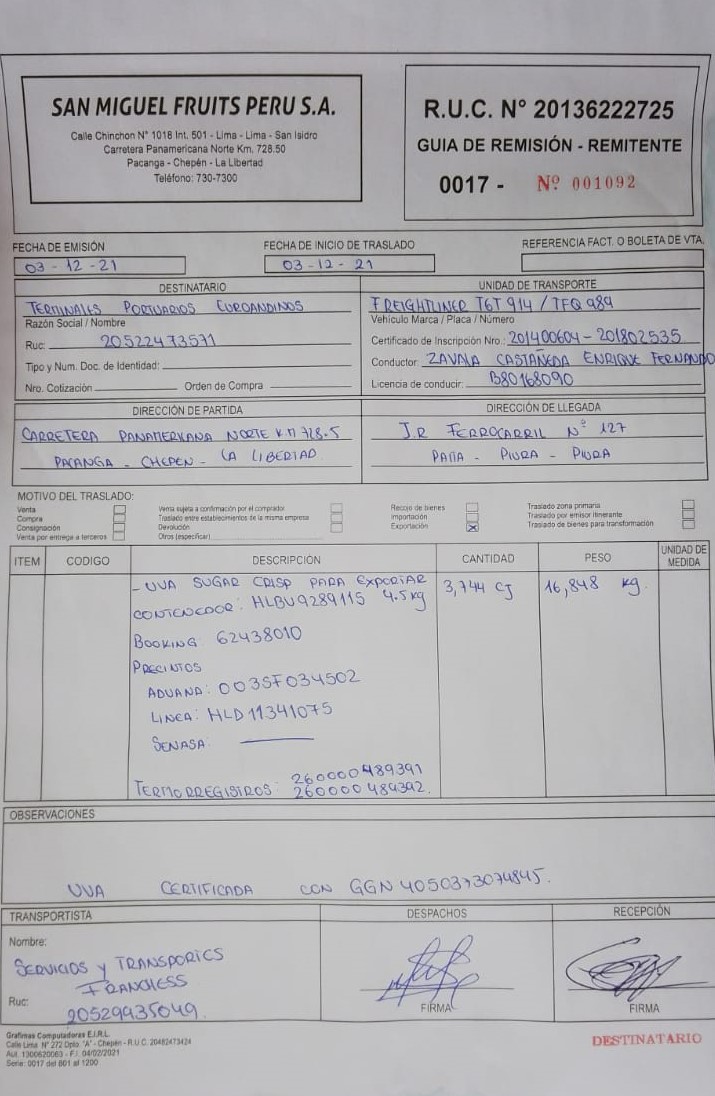 SAN MIGUEL FRUITS PERU S.A.
Calle Chinchon N° 1018 Int. 501 - Lima - Lima - San Isidro
Carretera Panamericana Norte Km. 728.50
Pacanga - Chepén - La Libertad
Teléfono: 730-7300
R.U.C. N° 20136222725
GUIA DE REMISIÓN - REMITENTE
0017 - Nº 001092
FECHA DE EMISIÓN
03-12-21
FECHA DE INICIO DE TRASLADO
03-12-21
REFERENCIA FACT. O BOLETA DE VTA.
DESTINATARIO
TERMINALES PORTUARIOS EUROANDINOS
Razón Social / Nombre
Ruc: 20522473571
Tipo y Num. Doc. de Identidad:
Nro. Cotización Orden de Compra
UNIDAD DE TRANSPORTE
FREIGHTLINER T6T 914 / TFQ 989
Vehículo Marca / Placa / Número
Certificado de Inscripción Nro.: 201400604 - 201802535
Conductor: ZAVALA CASTAÑEDA ENRIQUE FERNANDO
Licencia de conducir: B80168090
DIRECCIÓN DE PARTIDA
CARRETERA PANAMERICANA NORTE KM 728.5
PACANGA - CHEPEN - LA LIBERTAD
DIRECCIÓN DE LLEGADA
J.R FERROCARRIL N° 127
PAITA - PIURA - PIURA
MOTIVO DEL TRASLADO:
Venta
Compra
Consignación
Venta por entrega a terceros
Venta sujeta a confirmación por el comprador
Traslado entre establecimientos de la misma empresa
Devolución
Otros (especificar)
Recojo de bienes
Importación
Exportación X
Traslado zona primaria
Traslado por emisor itinerante
Traslado de bienes para transformación
ITEM CODIGO DESCRIPCIÓN CANTIDAD PESO UNIDAD DE MEDIDA
- UVA SUGAR CRISP PARA EXPORTAR 3,744 CJ 16,848 kg.
CONTENEDOR: HLBU9289115 4.5kg
BOOKING: 62438010
PRECINTOS
ADUANA: 003SF034502
LINEA: HLD11341075
SENASA:
260000489391
TERMORREGISTROS: 260000489392.
OBSERVACIONES
UVA CERTIFICADA CON GGN 4050373074845.
TRANSPORTISTA
Nombre:
SERVICIOS y TRANSPORTES
FRANCHESS
Ruc: 20529935049.
DESPACHOS
FIRMA
RECEPCIÓN
FIRMA
Grafimas Computadoras E.I.R.L.
Calle Lima N° 272 Dpto. "A" - Chepén - R.U.C. 20482473424
Aut. 1300620063 - F.I. 04/02/2021
Serie: 0017 del 801 al 1200
DESTINATARIO